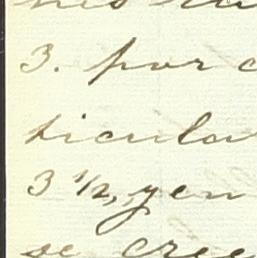 3. por
ticular
3 1/2, y en
se cree